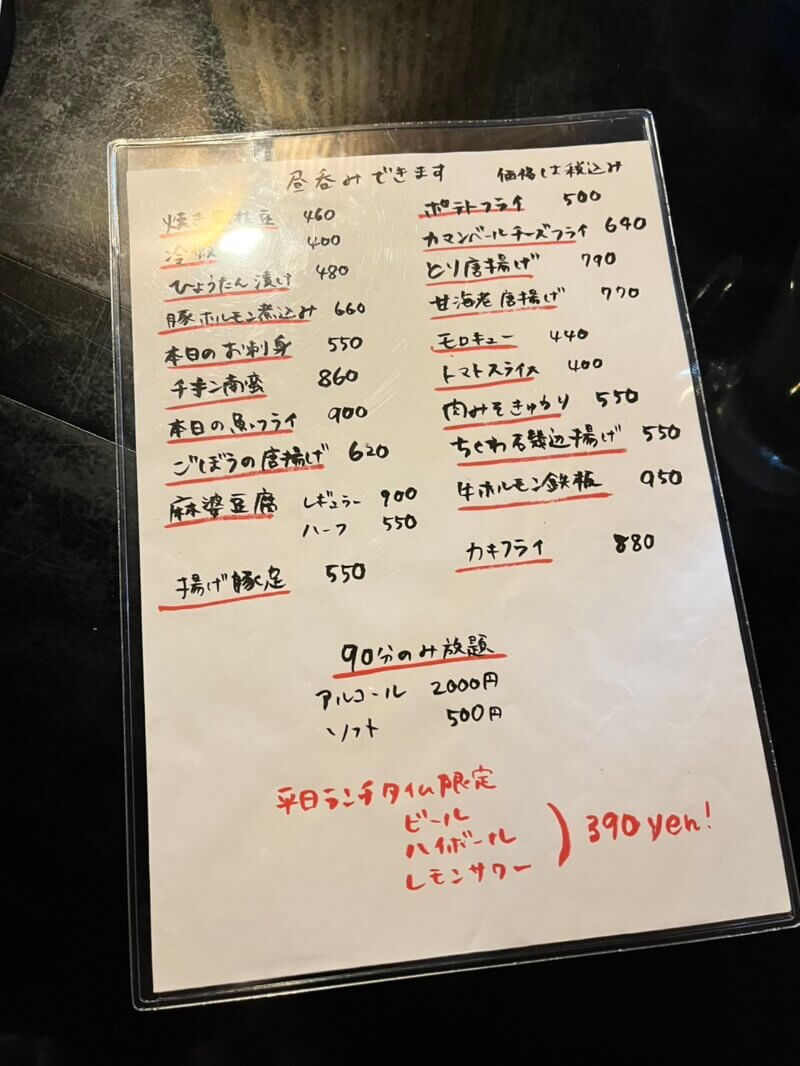 昼呑みできます 価格は税込み
焼き枝豆 460
冷奴 400
ひょうたん漬け 480
豚ホルモン煮込み 660
本日のお刺身 550
チキン南蛮 860
本日の魚フライ 900
ごぼうの唐揚げ 620
麻婆豆腐 レギュラー 900
ハーフ 550
揚げ豚足 550
ポテトフライ 500
カマンベールチーズフライ 640
とり唐揚げ 790
甘海老唐揚げ 770
モロキュー 440
トマトスライス 400
肉みそきゅうり 550
ちくわ石磯辺揚げ 550
牛ホルモン鉄板 950
カキフライ 880
90分のみ放題
アルコール 2000円
ソフト 500円
平日ランチタイム限定
ビール
ハイボール
レモンサワー
390yen!